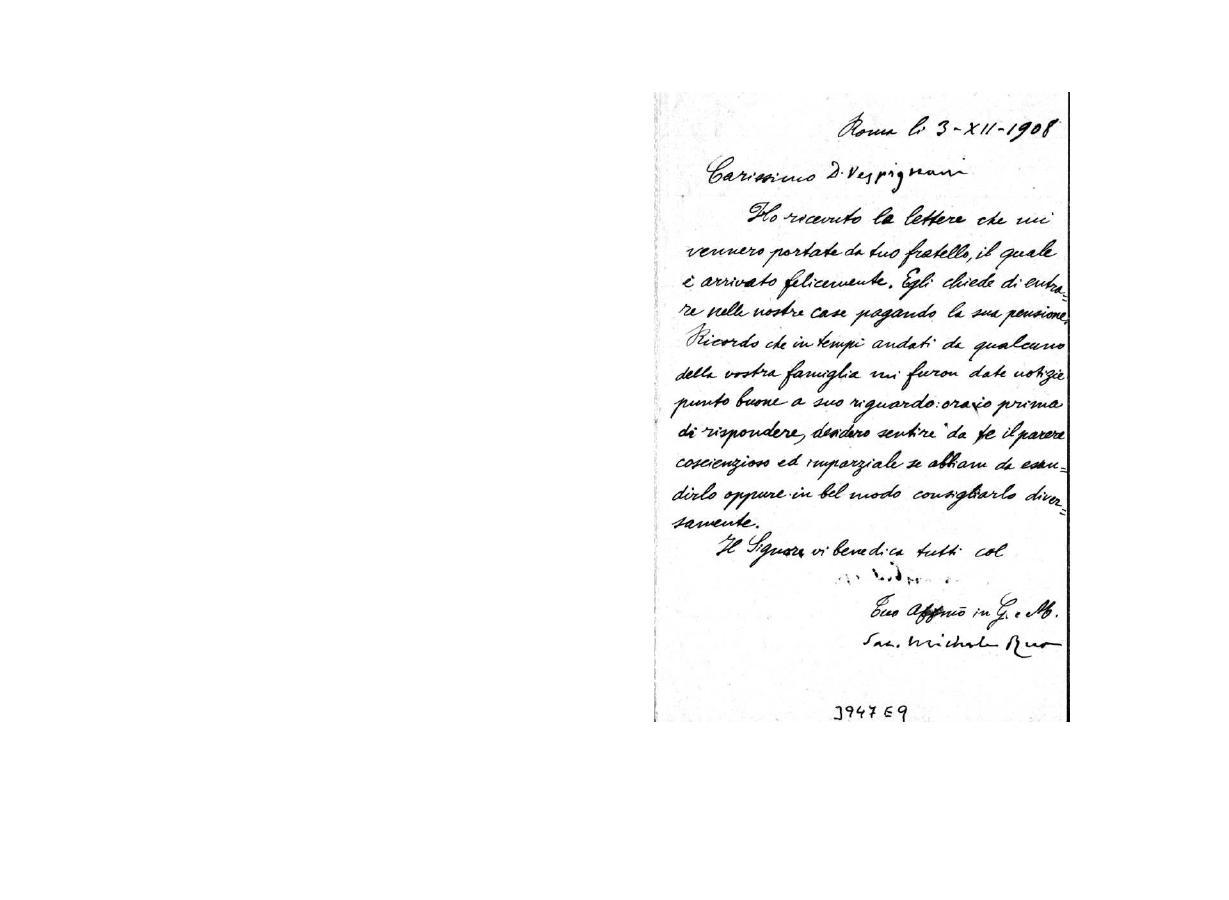 Roma li 3-XII-1908
Carissimo D. Vespignani
Ho ricevuto le lettere che mi
vennero portate da tuo fratello, il quale
è arrivato felicemente. Egli chiede di entra=
re nelle nostre case pagando la sua pensione.
Ricordo che in tempi andati da qualcuno
della vostra famiglia mi furon date notizie
punto buone a suo riguardo: ora io prima
di rispondere, desidero sentire da te il parere
coscienzioso ed imparziale se abbiam da esau=
dirlo oppure in bel modo consigliarlo diver=
samente.
Il Signore vi benedica tutti col
Tuo affmo in G. e M.
Sac. Michele Rua
3947 E 9